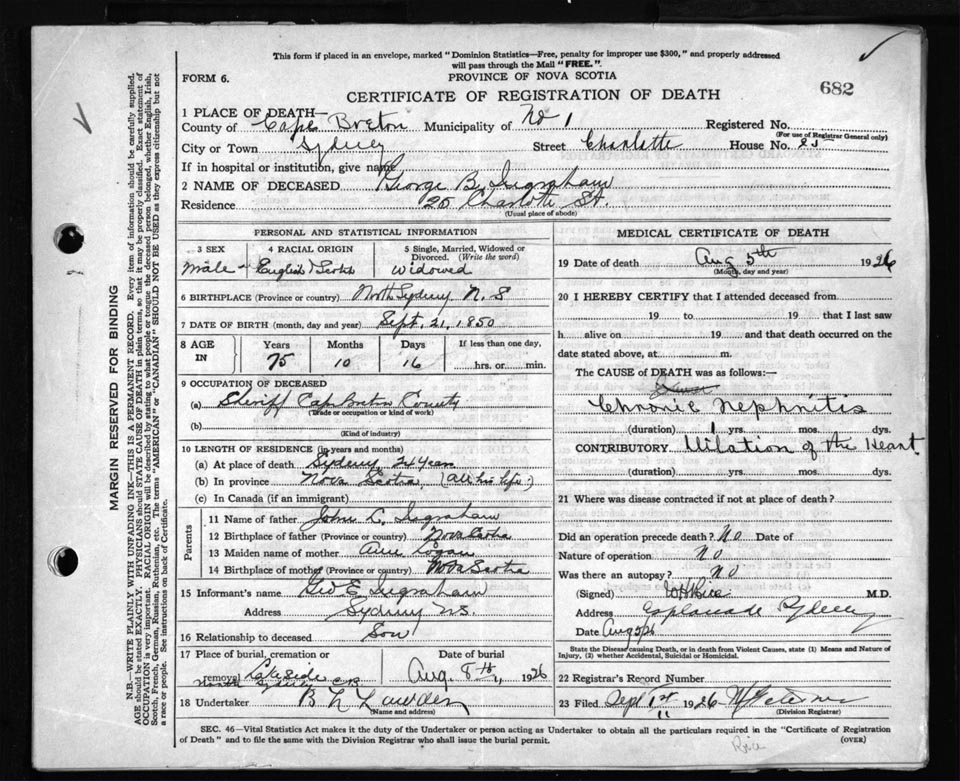 This form if placed in an envelope, marked "Dominion Statistics—Free, penalty for improper use $300," and properly addressed
will pass through the Mail "FREE."
FORM 6.
PROVINCE OF NOVA SCOTIA
682
CERTIFICATE OF REGISTRATION OF DEATH
1 PLACE OF DEATH—
County of Cape Breton Municipality of No 1 Registered No.
(For use of Registrar General only)
City or Town Sydney Street Charlotte House No. 25
If in hospital or institution, give name
2 NAME OF DECEASED George B. Ingraham
Residence 25 Charlotte St.
(Usual place of abode)
PERSONAL AND STATISTICAL INFORMATION
3 SEX 4 RACIAL ORIGIN 5 Single, Married, Widowed or Divorced. (Write the word)
Male English Scotch Widowed
6 BIRTHPLACE (Province or country) North Sydney N. S
7 DATE OF BIRTH (month, day and year) Sept. 21, 1850
8 AGE IN Years Months Days If less than one day,
75 10 16 hrs. or min.
9 OCCUPATION OF DECEASED
(a) Sheriff Cape Breton County
(Trade or occupation or kind of work)
(b)
(Kind of industry)
10 LENGTH OF RESIDENCE (in years and months)
(a) At place of death Sydney, 24 years
(b) In province Nova Scotia, (all his life)
(c) In Canada (if an immigrant)
Parents
11 Name of father John L. Ingraham
12 Birthplace of father (Province or country) Nova Scotia
13 Maiden name of mother Ann Logan
14 Birthplace of mother (Province or country) Nova Scotia
15 Informant's name Geo E Ingraham
Address Sydney N.S.
16 Relationship to deceased Son
17 Place of burial, cremation or removal Date of burial
Lakeside
North Sydney C.B. Aug. 8th, 1926
18 Undertaker B L
(Name and address)
MEDICAL CERTIFICATE OF DEATH
19 Date of death Aug 5th 1926
(Month, day and year)
20 I HEREBY CERTIFY that I attended deceased from
19 to 19 that I last saw
h alive on 19 and that death occurred on the
date stated above, at m.
The CAUSE of DEATH was as follows:—
Chronic Nephritis
(duration) 1 yrs. mos. dys.
CONTRIBUTORY Dilation of the Heart
(duration) yrs. mos. dys.
21 Where was disease contracted if not at place of death?
Did an operation precede death? No Date of
Nature of operation No
Was there an autopsy? no
(Signed) M.D.
Address Esplanade Sydney
Date Aug 5/26
State the Disease causing Death, or in death from Violent Causes, state (1) Means and Nature of
Injury, (2) whether Accidental, Suicidal or Homicidal.
22 Registrar's Record Number
23 Filed Sept 1st 1926
(Division Registrar)
SEC. 46—Vital Statistics Act makes it the duty of the Undertaker or person acting as Undertaker to obtain all the particulars required in the "Certificate of Registration
of Death" and to file the same with the Division Registrar who shall issue the burial permit.
(OVER)
Rice
MARGIN RESERVED FOR BINDING
N.B.—WRITE PLAINLY WITH UNFADING INK—THIS IS A PERMANENT RECORD. Every item of information should be carefully supplied.
AGE should be stated EXACTLY. PHYSICIANS should STATE CAUSE OF DEATH in plain terms, so that it may be properly classified. Exact statement of
OCCUPATION is very important. RACIAL ORIGIN will be described by stating to what people or tongue the deceased person belonged, whether English, Irish,
Scotch, French, German, Russian, Ruthenian, etc. The terms "AMERICAN" or "CANADIAN" SHOULD NOT BE USED as they express citizenship but not
a race or people. See instructions on back of Certificate.